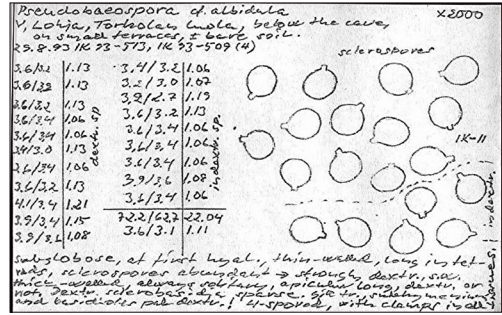 Pseudobaeospora cf. albidula
V, Lohja, Torhola, below the cave,
on small terraces, ± bare soil.
×2000
29.8.93 IK 93-513, IK 93-509 (4)
sclerospores
3.6/3.2 1.13 3.4/3.2 1.06
1.13 3.2/3.0 1.07
3.6/3.2 1.13 3.2/2.7 1.19
3.6/3.4 1.06 3.6/3.2 1.13
3.6/3.4 1.06 3.6/3.4 1.06
3.4/3.0 1.13 3.6/3.4 1.06
3.6/3.4 1.06 3.6/3.4 1.06
3.6/3.2 1.13 3.9/3.6 1.08
4.1/3.4 1.21 3.6/3.4 1.06
3.9/3.4 1.15 72.2/62.7 22.04
3.9/3.6 1.08 3.6/3.1 1.11
dextr. sp.
indextr. sp.
IK-11
indextr.
Subglobose, at first hyal., thin-walled, long in tet-
rads, sclerospores abundant → strongly dextr., s.w.
thick-walled, always solitary, apiculus long, dextr. or
not. Dextr. sclerobasidia sparse.
and basidioles pale dextr.; 4-spored, with clamps in all